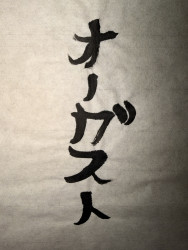 オーガスト